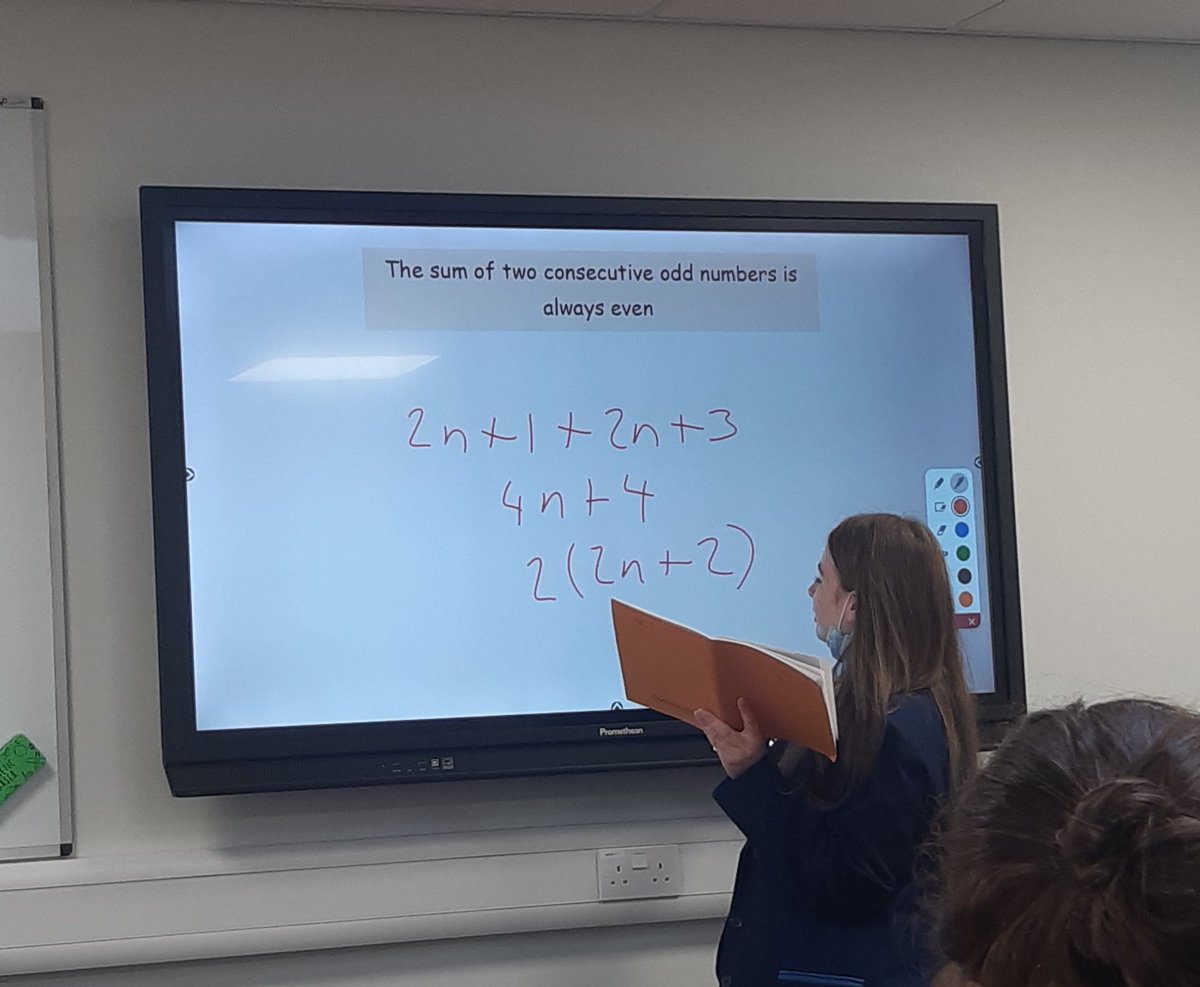 The sum of two consecutive odd numbers is
always even
2n+1+2n+3
4n+4
2(2n+2)
Promethean